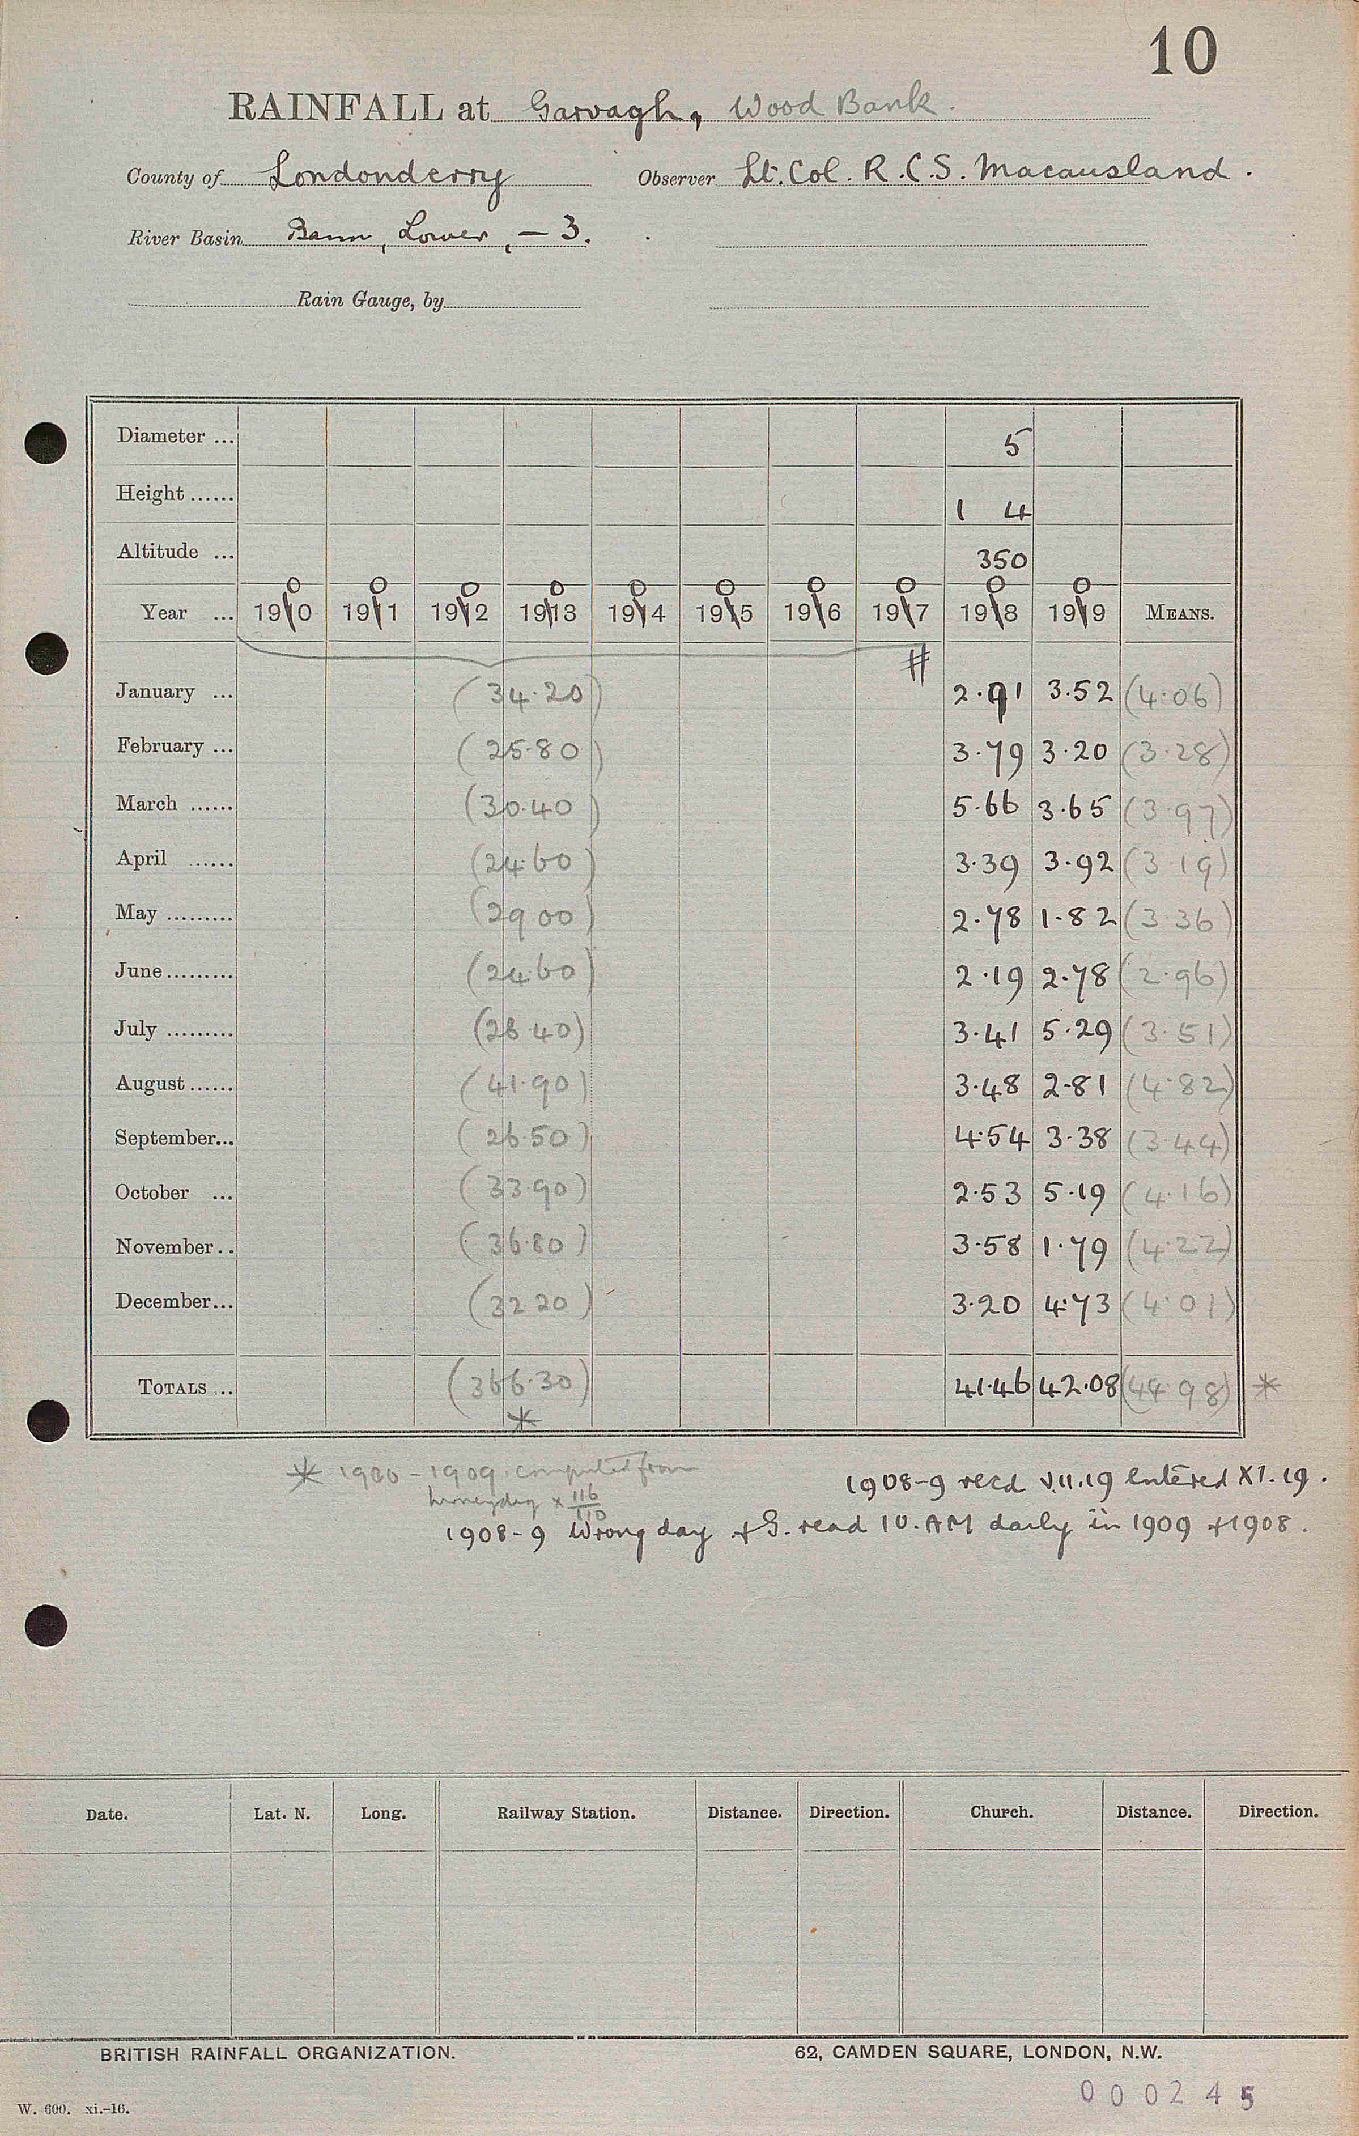 10
RAINFALL at Garvagh, Wood Bank.
County of Londonderry Observer Lt. Col. R.C.S. Macausland.
River Basin Bann, Lower, - 3.
Rain Gauge, by
Diameter ... 5
Height ...... 1 4
Altitude ... 350
Year ... 1900 1901 1902 1903 1904 1905 1906 1907 1908 1909 MEANS.
January ... (34.20) # 2.91 3.52 (4.06)
February ... (25.80) 3.79 3.20 (3.28)
March ...... (30.40) 5.66 3.65 (3.97)
April ...... (24.60) 3.39 3.92 (3.19)
May ......... (29 00) 2.78 1.82 (3.36)
June ......... (24.60) 2.19 2.78 (2.96)
July ......... (28 40) 3.41 5.29 (3.51)
August ...... (41.90) 3.48 2.81 (4.82)
September... (26.50) 4.54 3.38 (3.44)
October ... (33.90) 2.53 5.19 (4.16)
November .. (36.80) 3.58 1.79 (4.22)
December... (32 20) 3.20 4.73 (4.01)
TOTALS ... (366.30) 41.46 42.08 (44.98) *
*
* 1900-1909 computed from
x 116/110
1908-9 recd V.11.19 entered XI.19.
1908-9 Wrong day & G. read 10. AM daily in 1909 & 1908.
Date. Lat. N. Long. Railway Station. Distance. Direction. Church. Distance. Direction.
BRITISH RAINFALL ORGANIZATION. 62, CAMDEN SQUARE, LONDON, N.W.
000245
W. 600. xi.-16.